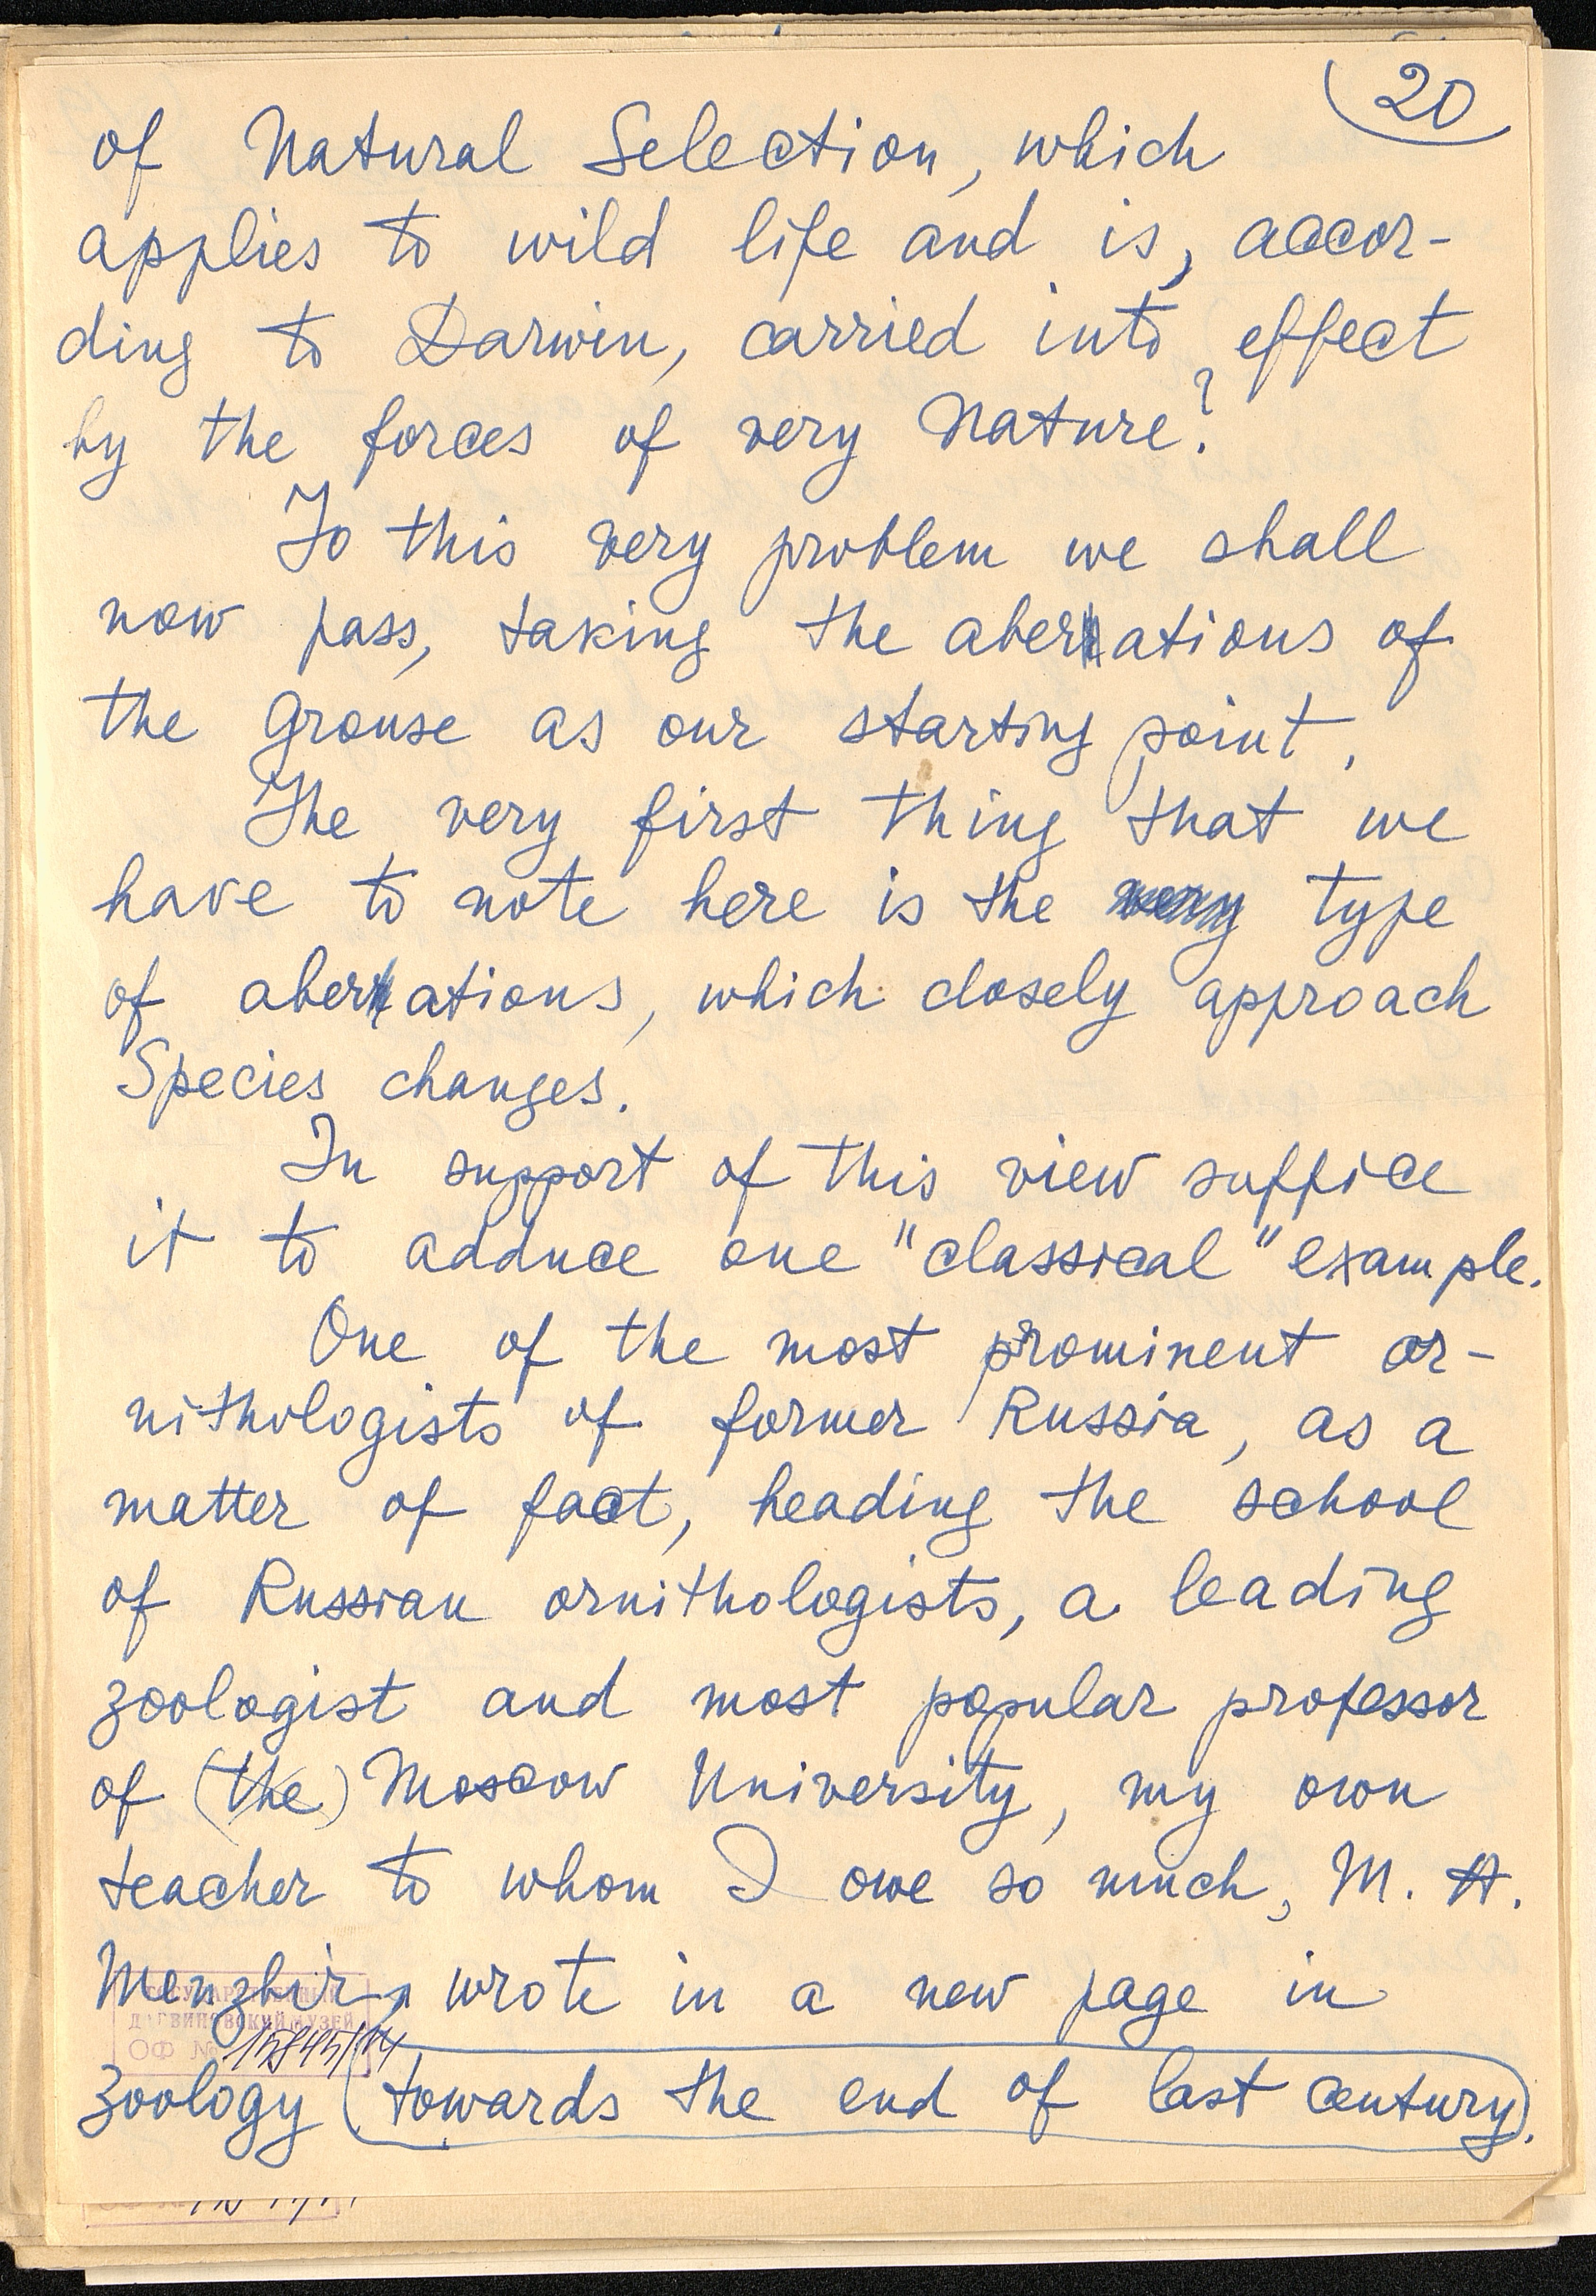 20
of Natural Selection, which
applies to wild life and is, accor-
ding to Darwin, carried into effect
by the forces of very Nature?
To this very problem we shall
now pass, taking the aberrations of
the Grouse as our starting point.
The very first thing that we
have to note here is the very type
of aberrations, which closely approach
Species changes.
In support of this view suffice
it to adduce one "classical" example.
One of the most prominent or-
nithologists of former Russia, as a
matter of fact, heading the school
of Russian ornithologists, a leading
zoologist and most popular professor
of (the) Moscow University, my own
teacher to whom I owe so much, M. A.
Menzbir, wrote in a new page in
ГОСУДАРСТВЕННЫЙ
ДАРВИНОВСКИЙ МУЗЕЙ
ОФ №
zoology (towards the end of last century).